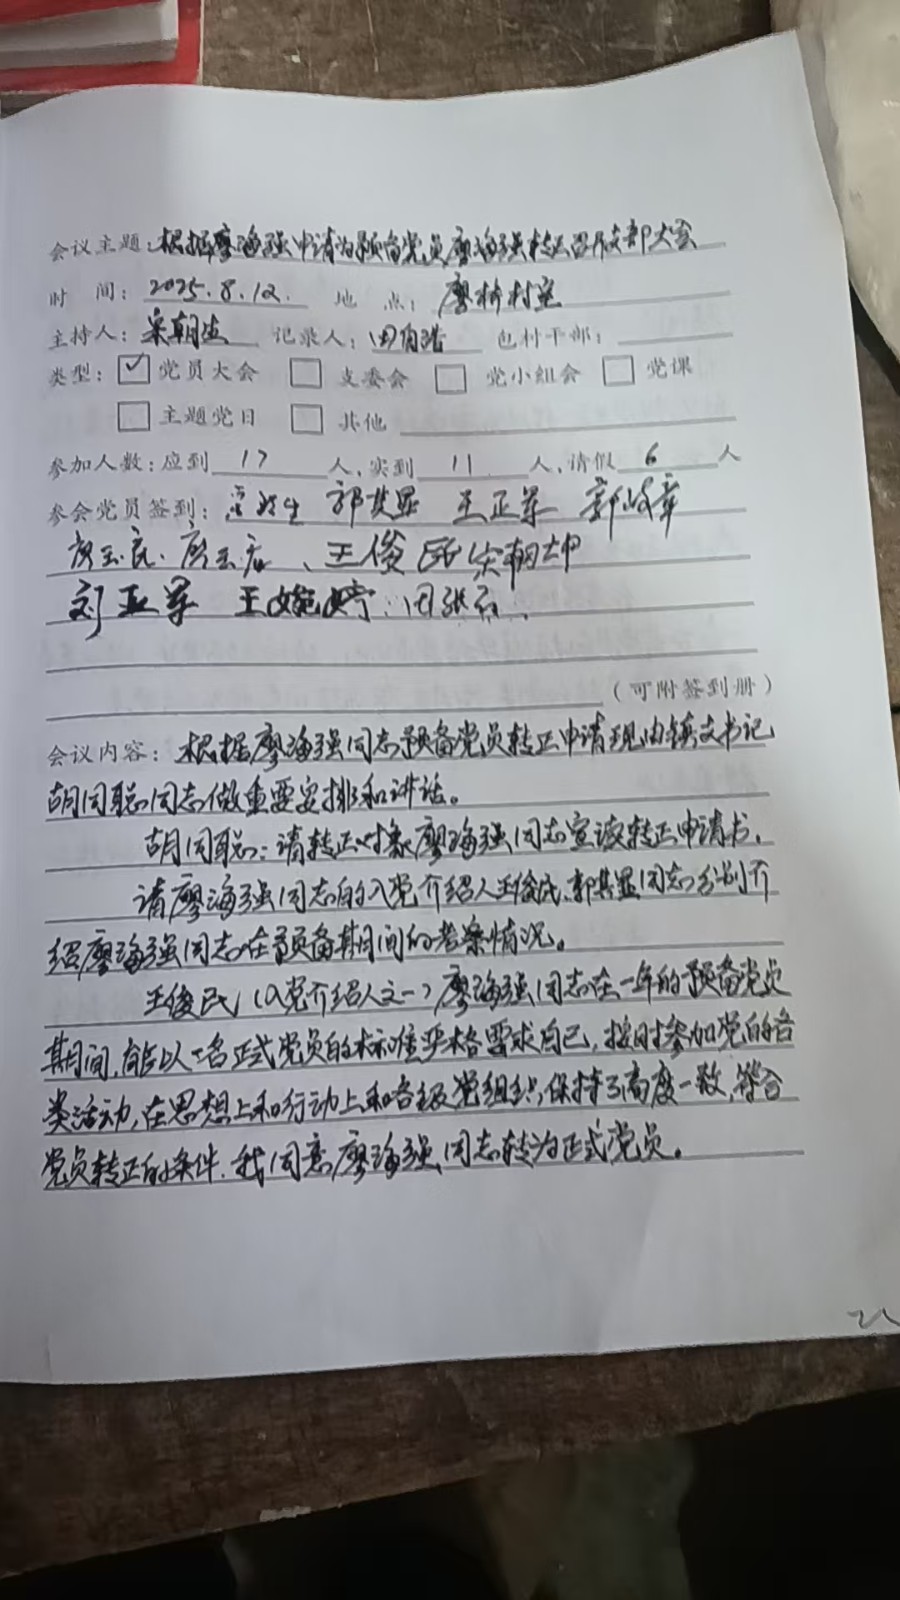 会议主题:根据廖海强申请为预备党员廖海强转正召开支部大会
时 间:2025.8.12. 地 点:廖桥村室
主持人:宋朝生 记录人:田自浩 包村干部:
类型:☑党员大会 □支委会 □党小组会 □党课
□主题党日 □其他
参加人数:应到17人,实到11人,请假6人
参会党员签到: 郭其显 王正军 郭岐章
王俊民 宋朝帅
刘亚军 王婉婷
(可附签到册)
会议内容:根据廖海强同志预备党员转正申请现由镇支书记
胡同聪同志做重要安排和讲话。
胡同聪:请转正对象廖海强同志宣读转正申请书.
请廖海强同志的入党介绍人王俊民、郭其显同志分别介
绍廖海强同志在预备期间的考察情况。
王俊民(入党介绍人之一)廖海强同志在一年的预备党员
期间,能以一名正式党员的标准严格要求自己,按时参加党的各
类活动,在思想上和行动上和各级党组织,保持了高度一致,符合
党员转正的条件.我同意廖海强同志转为正式党员。